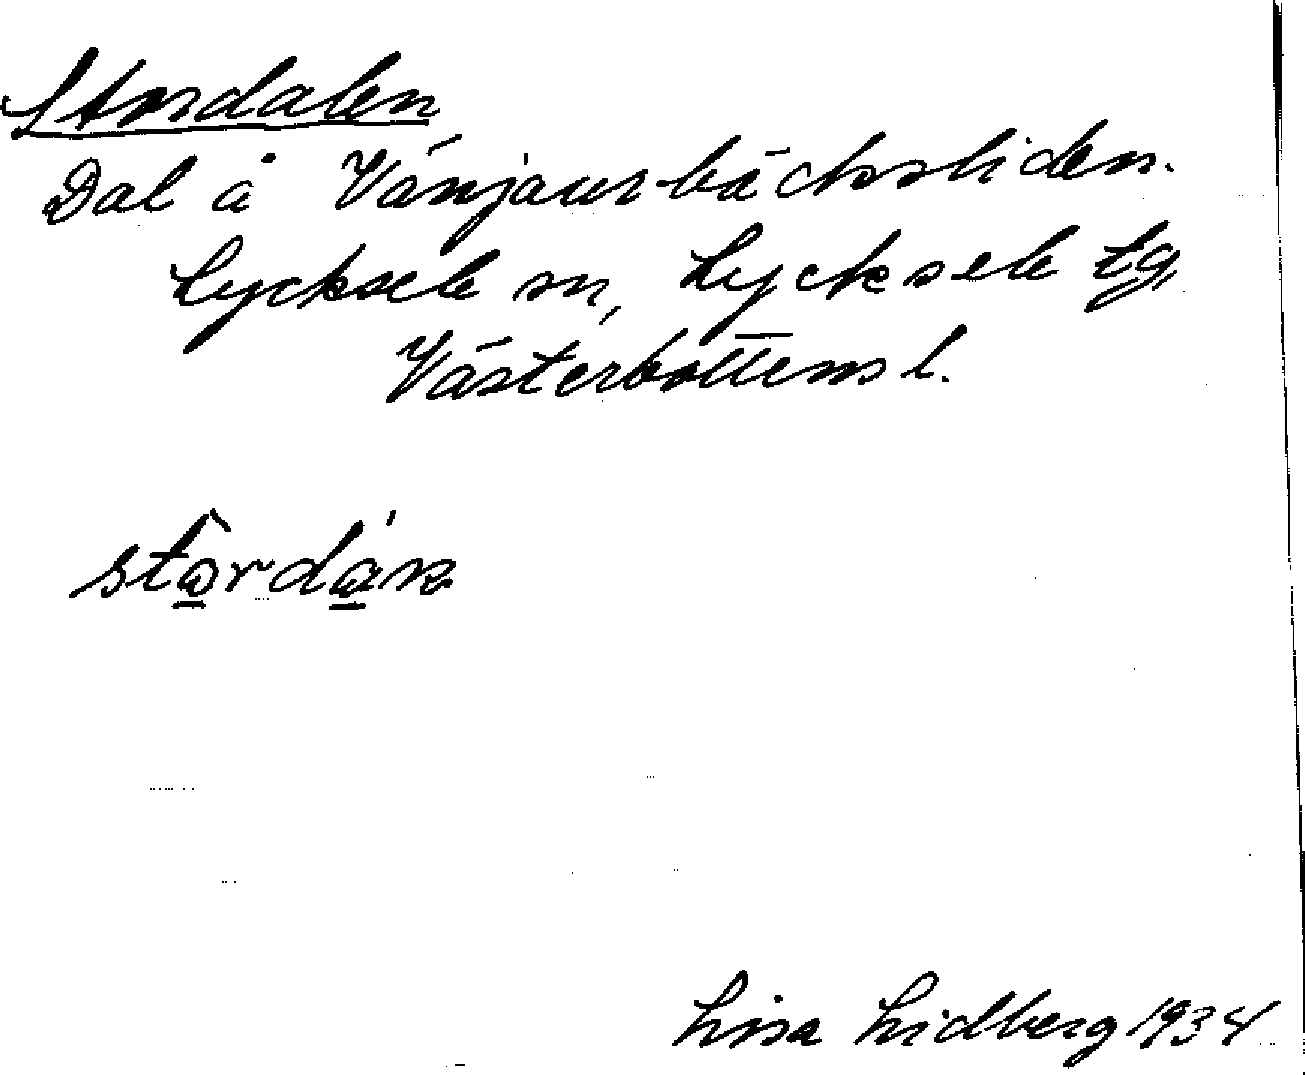 Stordalen
Dal å Vänjaurbäcksliden.
Lycksele sn, Lycksele tg,
Västerbottens l.
Lisa Lidberg 1934